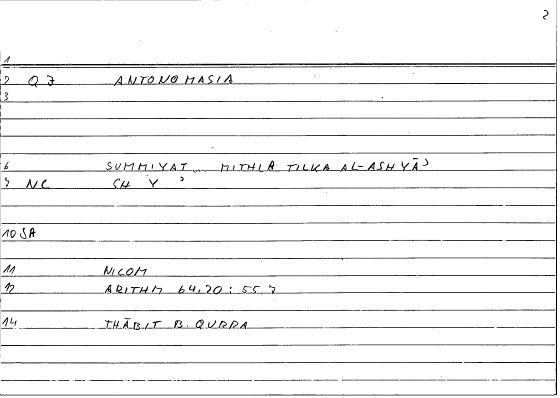 2
1
2 Q7 ANTONOMASIA
3
6 SUMMIYAT .. MITHLA TILKA AL-ASHYĀʾ
7 NC SH Y ʾ
10 SA
11 NICOM
12 ARITHM 64.20 : 55.7
14 THĀBIT B. QURRA